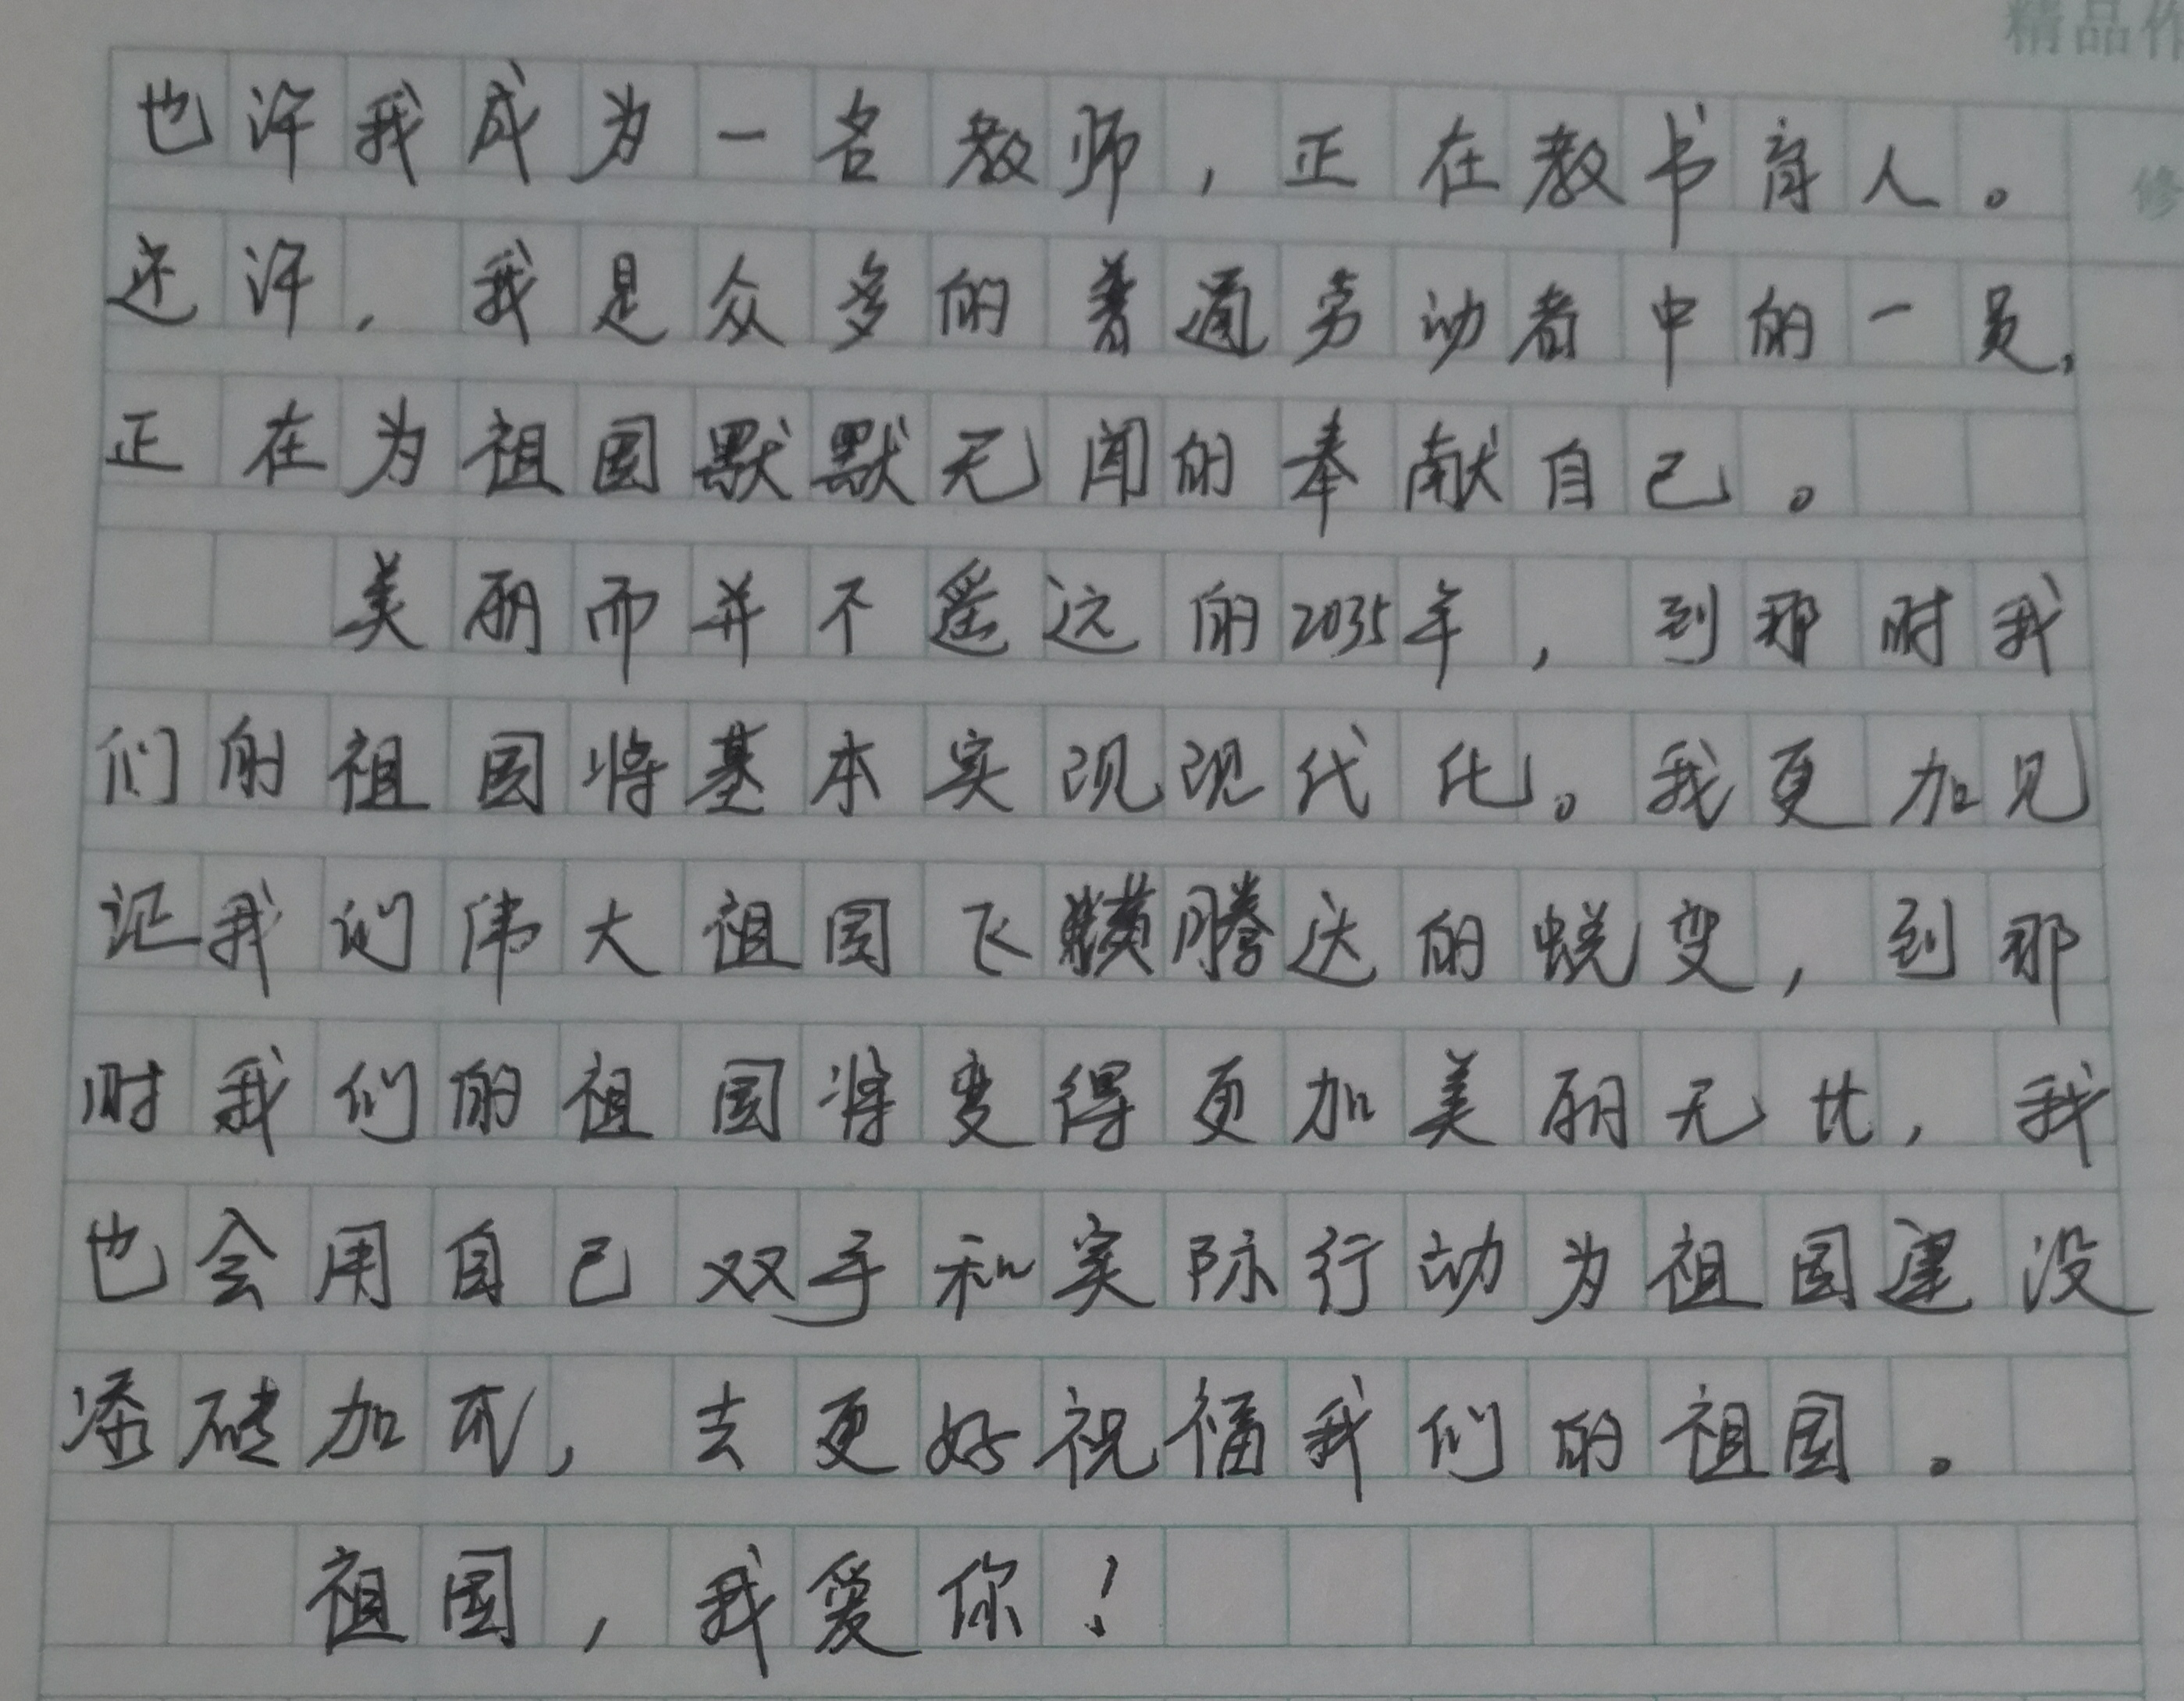 精品作
也许我成为一名教师，正在教书育人。
修
还许，我是众多的普通劳动者中的一员，
正在为祖国默默无闻的奉献自己。
美丽而并不遥远的2035年，到那时我
们的祖国将基本实现现代化。我更加见
证我们伟大祖国飞黄腾达的蜕变，到那
时我们的祖国将变得更加美丽无比，我
也会用自己双手和实际行动为祖国建设
添砖加瓦，去更好祝福我们的祖国。
祖国，我爱你！